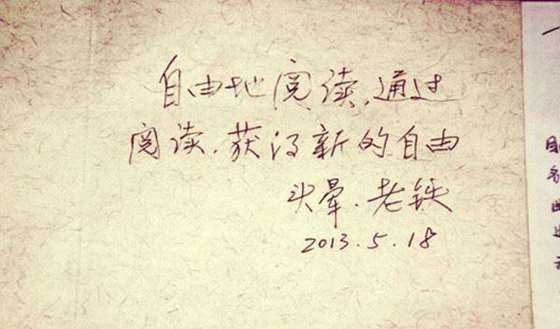 自由地阅读,通过
阅读.获得新的自由
头晕.老铁
2013.5.18